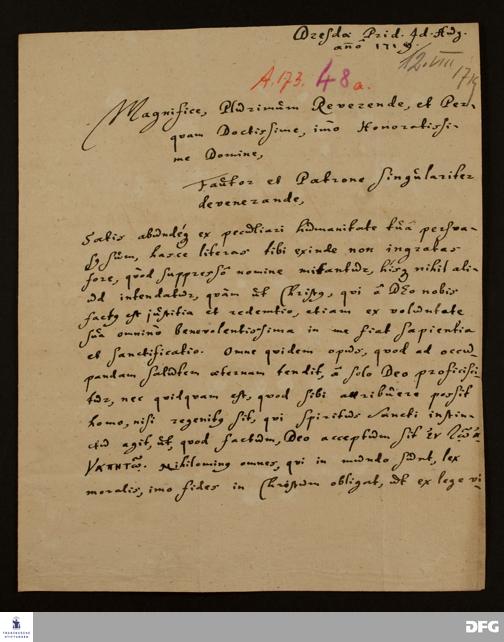 Dresdæ Prid. Id. Aug.
anno 1719.
12. VIII 1719
A.173. 48a.
Magnifice, Plurimùm Reverende, et Per-
quam Doctissime, imo Honoratissi-
me Domine,
Fautor et Patrone singulariter
devenerande,
Satis abundeq; ex peculiari humanitate tuâ persva-
sus sum, hasce literas tibi exinde non ingratas
fore, quòd suppresso nomine mittantur, hisq; nihil ali-
ud intendatur, quàm ut Christus, qui à Deo nobis
factus est justitia et redemtio, etiam ex voluntate
suâ omnino benevolentissima in me fiat sapientia
et sanctificatio. Omne quidem opus, quod ad occu-
pandam salutem æternam tendit, à solo Deo proficisci-
tur, nec quidquam est, quod sibi attribuere possit
homo, nisi regenitus sit, qui Spiritus Sancti instin-
ctu agit, ut, quod factum, Deo acceptum sit ἐν
Nihilominus omnes, qui in mundo sunt, lex
moralis, imo fides in Christum obligat, ut ex lege vi-
FRANCKESCHE
STIFTUNGEN
DFG